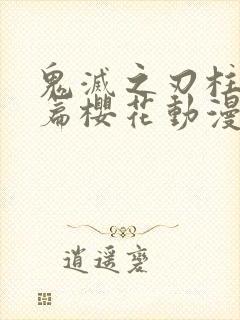 鬼滅之刃柱
篇櫻花動漫
逍遥磬